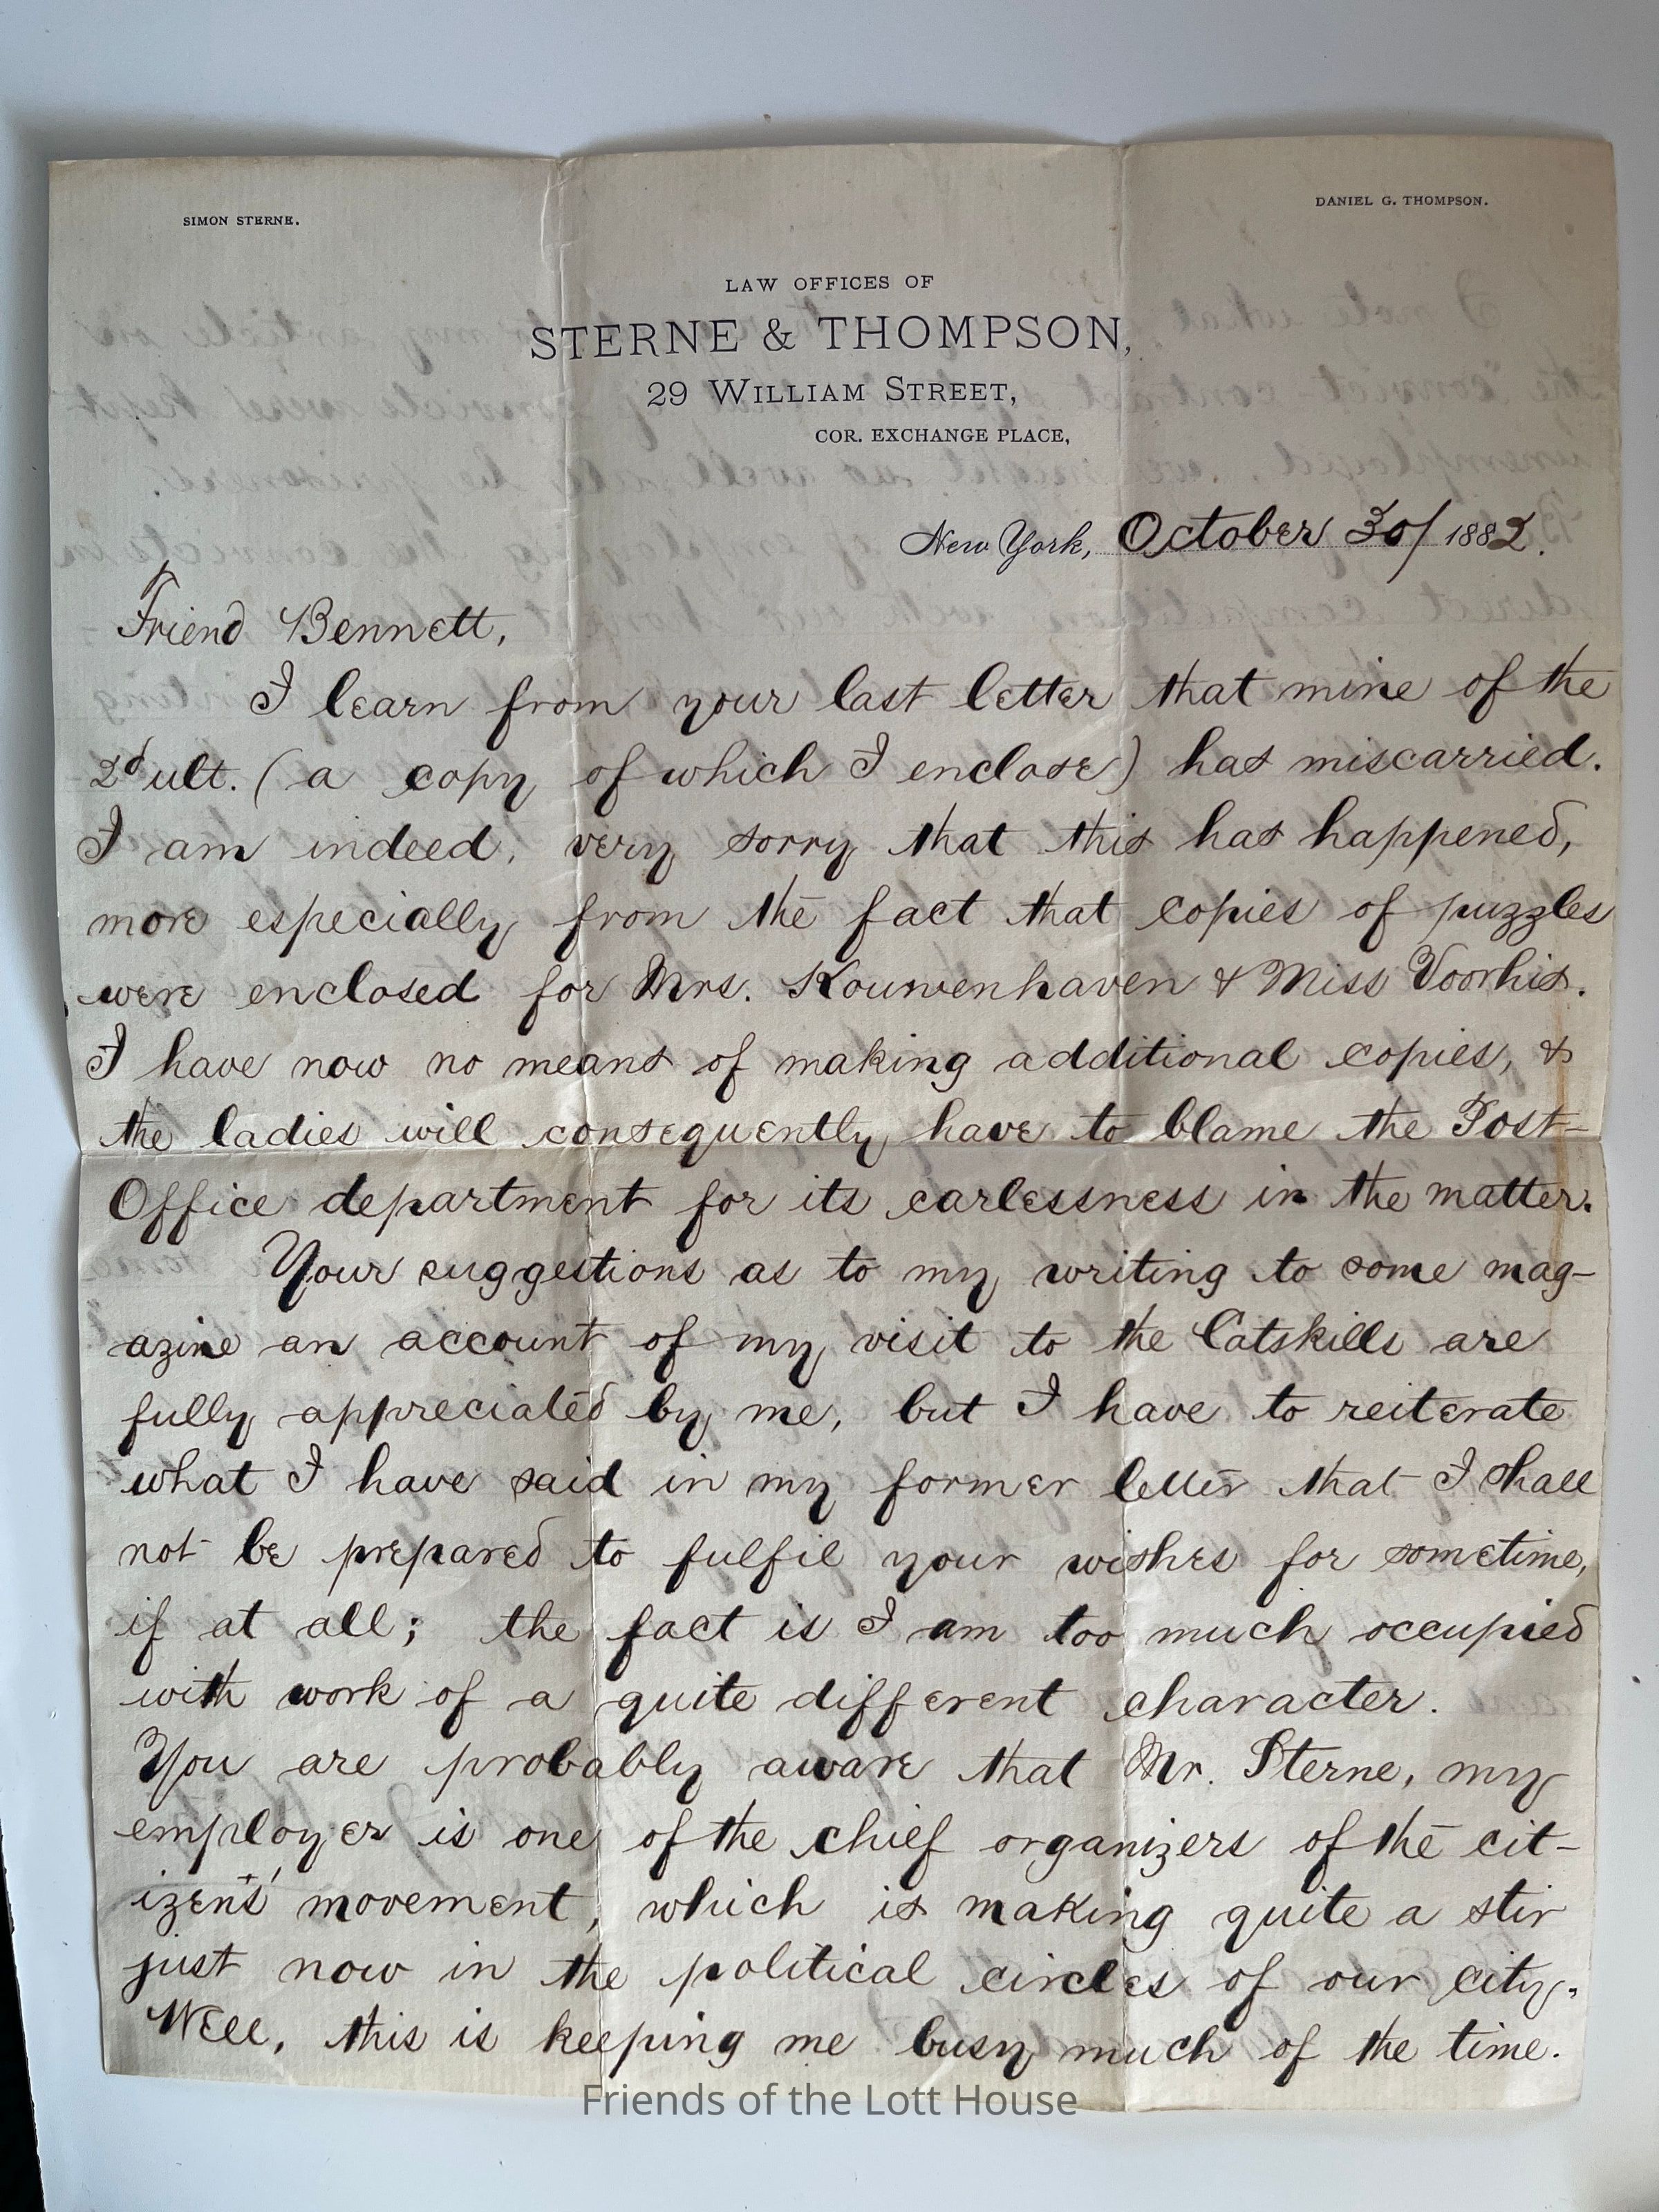 SIMON STERNE.
DANIEL G. THOMPSON.
LAW OFFICES OF
STERNE & THOMPSON,
29 WILLIAM STREET,
COR. EXCHANGE PLACE,
New York, October 30/ 1882.
Friend Bennett,
I learn from your last letter that mine of the
2d ult. (a copy of which I enclose) has miscarried.
I am indeed, very sorry that this has happened,
more especially from the fact that copies of puzzles
were enclosed for Mrs. Kouwenhaven & Miss Voorhis.
I have now no means of making additional copies, &
the ladies will consequently have to blame the Post-
Office department for its carlessness in the matter.
Your suggestions as to my writing to some mag-
azine an account of my visit to the Catskills are
fully appreciated by me, but I have to reiterate
what I have said in my former letter that I shall
not be prepared to fulfil your wishes for sometime,
if at all; the fact is I am too much occupied
with work of a quite different character.
You are probably aware that Mr. Sterne, my
employer is one of the chief organizers of the cit-
izens' movement, which is making quite a stir
just now in the political circles of our city.
Well, this is keeping me busy much of the time.
Friends of the Lott House